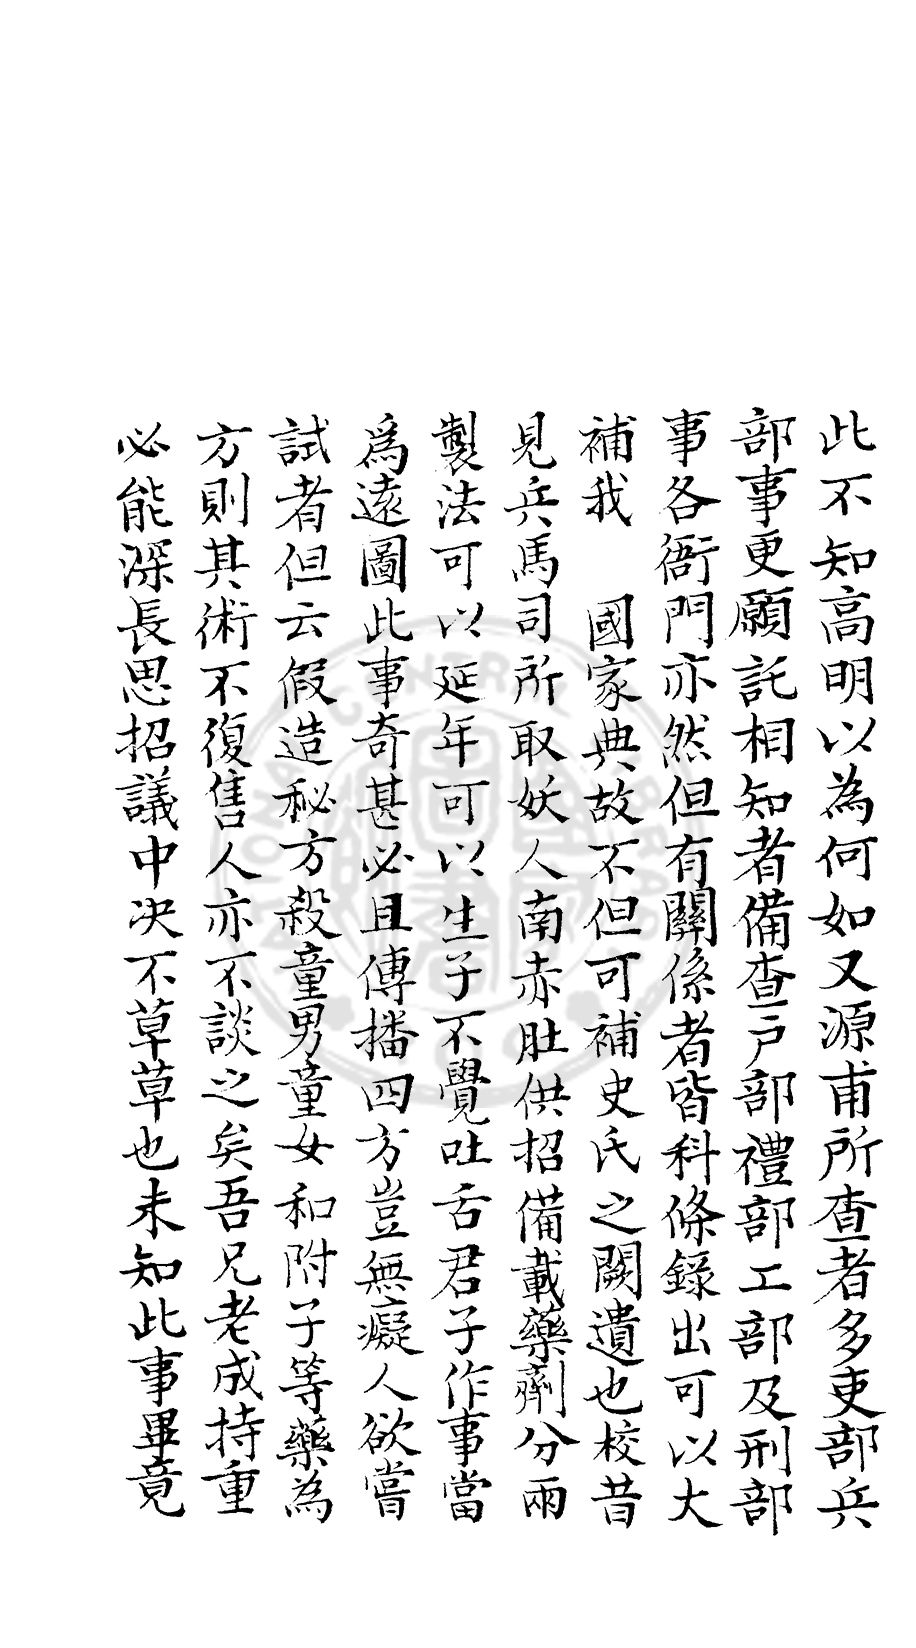 此不知高明以為何如又源甫所查者多吏部兵
部事更願託相知者備查戶部禮部工部及刑部
事各衙門亦然但有關係者皆科條錄出可以大
補我　國家典故不但可補史氏之闕遺也校昔
見兵馬司所取妖人南赤肚供招備載藥劑分兩
製法可以延年可以生子不覺吐舌君子作事當
爲遠圖此事奇甚必且傳播四方豈無癡人欲嘗
試者但云假造秘方殺童男童女和附子等藥為
方則其術不復售人亦不談之矣吾兄老成持重
必能深長思招議中決不草草也未知此事畢竟